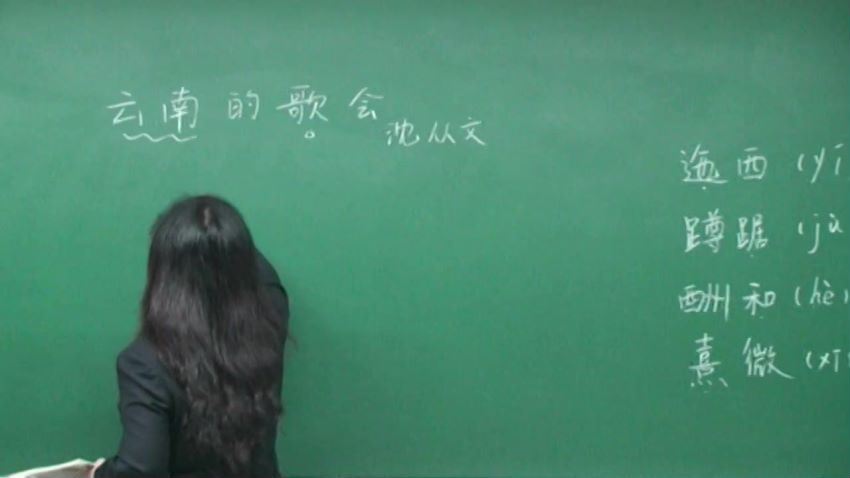 云南的歌会
沈从文
迤西(yǐ
蹲踞(jù
酬和(hè)
熹微(xī